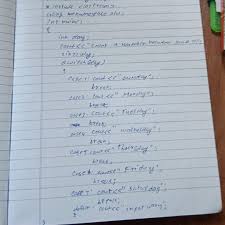 # include <iostream>
using namespace std;
int main()
{
int day;
cout<<"Enter a number between
cin>>day;
switch(day)
{
case 1: cout<<"Sunday";
break;
case 2: cout<<"Monday";
break;
case 3: cout<<"Tuesday";
break;
case 4: cout<<"wednesday";
break;
case 5: cout<<"Thursday";
break;
case 6: cout<<"Friday";
break;
case 7: cout<<"Saturday";
break;
cout<<"input
}